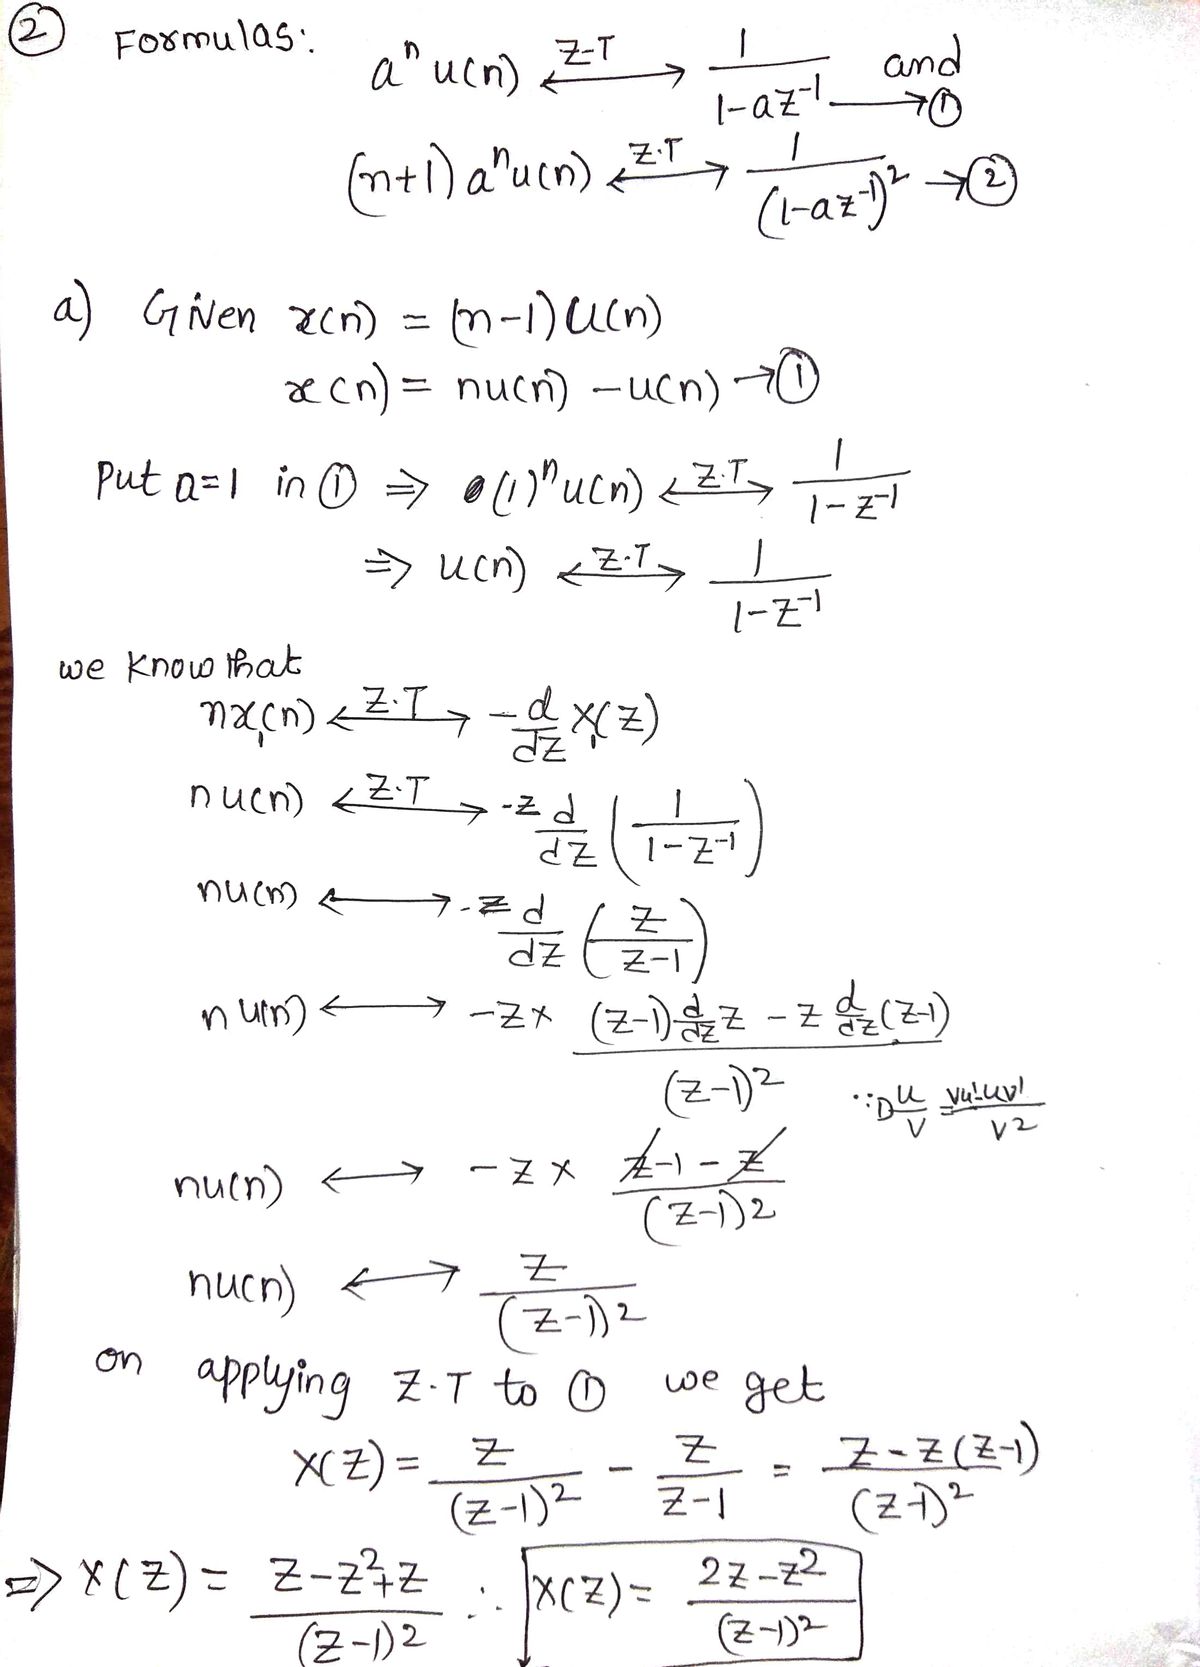 ② Formulas:
aⁿ u(n) <--Z-T--> 1/(1-az⁻¹) and →①
(n+1) aⁿu(n) <--Z.T--> 1/(1-az⁻¹)² →②
a) Given x(n) = (n-1)U(n)
x(n) = nu(n) - u(n) →①
Put a=1 in ① ⇒ (1)ⁿu(n) <--Z.T--> 1/(1-z⁻¹)
⇒ u(n) <--Z.T--> 1/(1-z⁻¹)
we know that
nx₁(n) <--Z.T--> -d/dz X₁(z)
nu(n) <--Z.T--> -z d/dz (1/(1-z⁻¹))
nu(n) <--> -z d/dz (z/(z-1))
nu(n) <--> -z× ((z-1) d/dz z - z d/dz (z-1))/(z-1)²
∵ D u/v = (vu'-uv')/v2
nu(n) <--> -z × (z-1-z)/(z-1)2
nu(n) <--> z/(z-1)2
on applying Z.T to ① we get
X(z) = z/(z-1)² - z/(z-1) = (z-z(z-1))/(z-1)²
⇒ X(z) = (z-z²+z)/(z-1)2 ∴ X(z) = (2z-z²)/(z-1)²